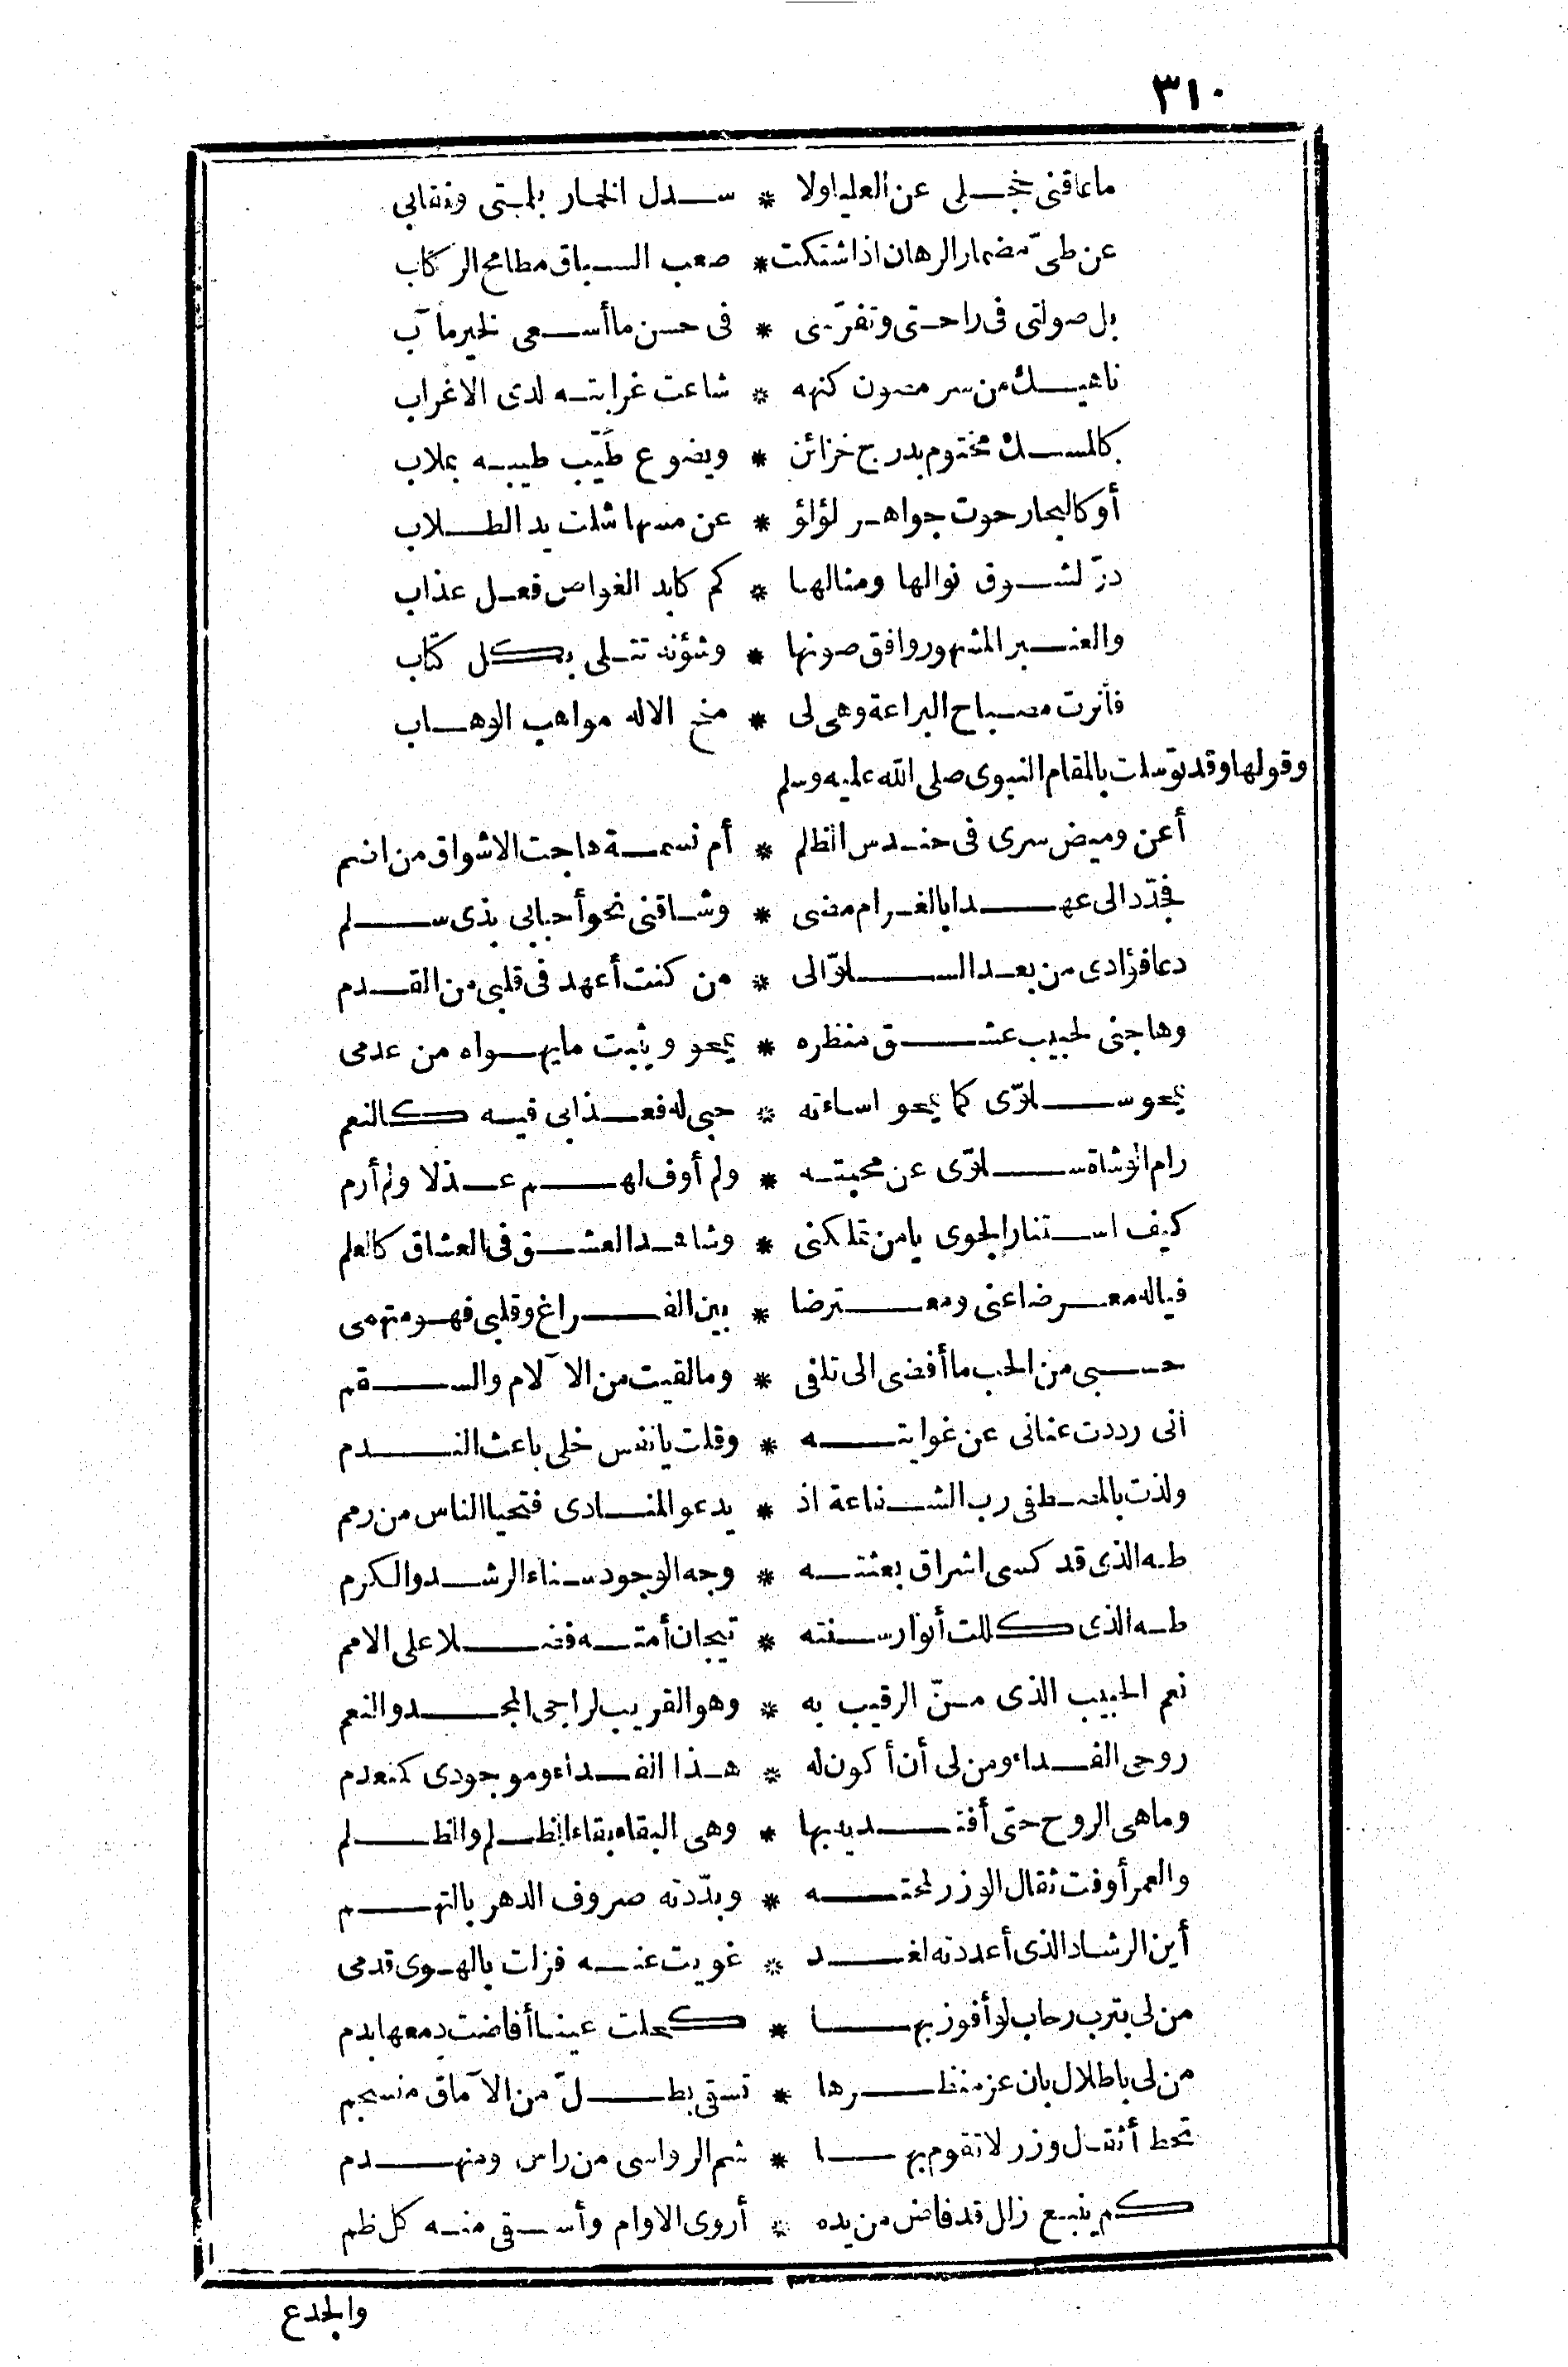 ٣١٠
ما عاقنى خجلى عن العلياولا * سدل الخمار بلمتى ونقابى
عن طىّ مضمار الرهان اذا شتكت * صعب السباق مطامح الركاب
بل صولتى فى راحتى وتفرّسى * فى حسن ما أسعى لخير مآب
ناهيك من سر مصون كنهه * شاعت غرابته لدى الاغراب
كالمسك مختوم بدرج خزائن * ويضوع طيّب طيبه بملاب
أو كالبحار حوت جواهر لؤلؤ * عن مسها شلت يد الطلاب
درّ لشوق نوالها ومنالها * كم كابد الغواص فعل عذاب
والعنبر المشهور وافق صونها * وشؤنه تتلى بكل كتاب
فأنرت مصباح البراعة وهى لى * منح الاله مواهب الوهاب
وقولها وقد توسلت بالمقام النبوى صلى الله عليه وسلم
أعن وميض سرى فى حندس الظلم * أم نسمة هاجت الاشواق من اضم
فجدّد الى عهدا بالغرام مضى * وشاقنى نحو أحبابى بذى سلم
دعا فؤادى من بعد السلوّ الى * من كنت أعهد فى قلبى من القدم
وهاجنى لحبيب عشق منظره * يمحو ويثبت ما يهواه من عدمى
يمحو سلوّى كما يمحو اساءته * حبى له فعذابى فيه كالنعم
رام الوشاة سلوّى عن محبته * ولم أوف لهم عذلا ولم أرم
كيف استنار الجوى يا من تملكنى * وشاهد العشق فى العشاق كالعلم
فياله معرضا عنى ومعترضا * بين الفراغ وقلبى فهو متهمى
حسبى من الحب ما أفضى الى تلفى * وما لقيت من الآلام والسقم
انى رددت عنانى عن غوايته * وقلت يا نفس خلى باعث الندم
ولذت بالمصطفى رب الشفاعة اذ * يدعو المنادى فتحيا الناس من رمم
طه الذى قد كسى اشراق بعثته * وجه الوجود سناء الرشد والكرم
طه الذى كللت أنوار سنته * تيجان أمته فضلا على الامم
نعم الحبيب الذى منّ الرقيب به * وهو القريب لراجى المجد والنعم
روحى الفداء ومن لى أن أكون له * هذا الفداء وموجودى كمنعدم
وما هى الروح حتى أفتديه بها * وهى البقاء بقاء الظلم والظلم
والعمر أوفت ثقال الوزر لمحته * وبدّدته صروف الدهر بالتهم
أين الرشاد الذى أعددته لغد * غويت عنه فزلت بالهوى قدمى
من لى بترب رحاب لو أفوز بها * كحلت عينا أفاضت دمعها بدم
من لى باطلال بان عز منظرها * تسقى بطلّ من الآماق منسجم
تحط أثقل وزر لا تقوم بها * شم الرواسى من راس ومنهدم
كم ينبع زلال قد فاض من يده * أروى الاوام وأسقى منه كل ظم
والجذع